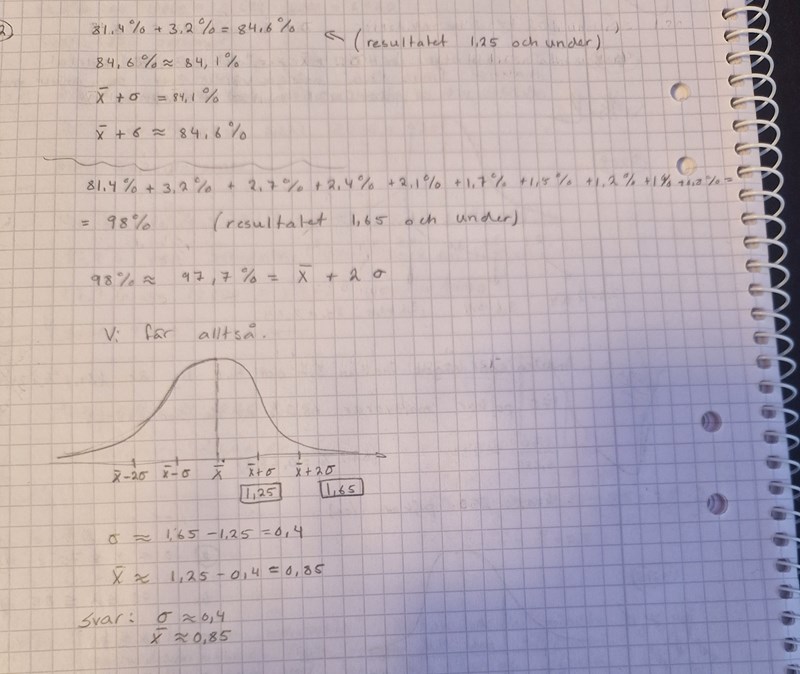 2)
81.4% + 3.2% = 84,6% ← (resultatet 1,25 och under)
84,6% ≈ 84,1%
x̄ + σ = 84,1%
x̄ + σ ≈ 84,6%
81,4% + 3,2% + 2,7% + 2,4% + 2,1% + 1,7% + 1,5% + 1,2% + 1% +
= 98% (resultatet 1,65 och under)
98% ≈ 97,7% = x̄ + 2σ
Vi får alltså.
x̄-2σ x̄-σ x̄ x̄+σ x̄+2σ
1,25 1,65
σ ≈ 1,65 - 1,25 = 0,4
x̄ ≈ 1,25 - 0,4 = 0,85
Svar: σ ≈ 0,4
x̄ ≈ 0,85